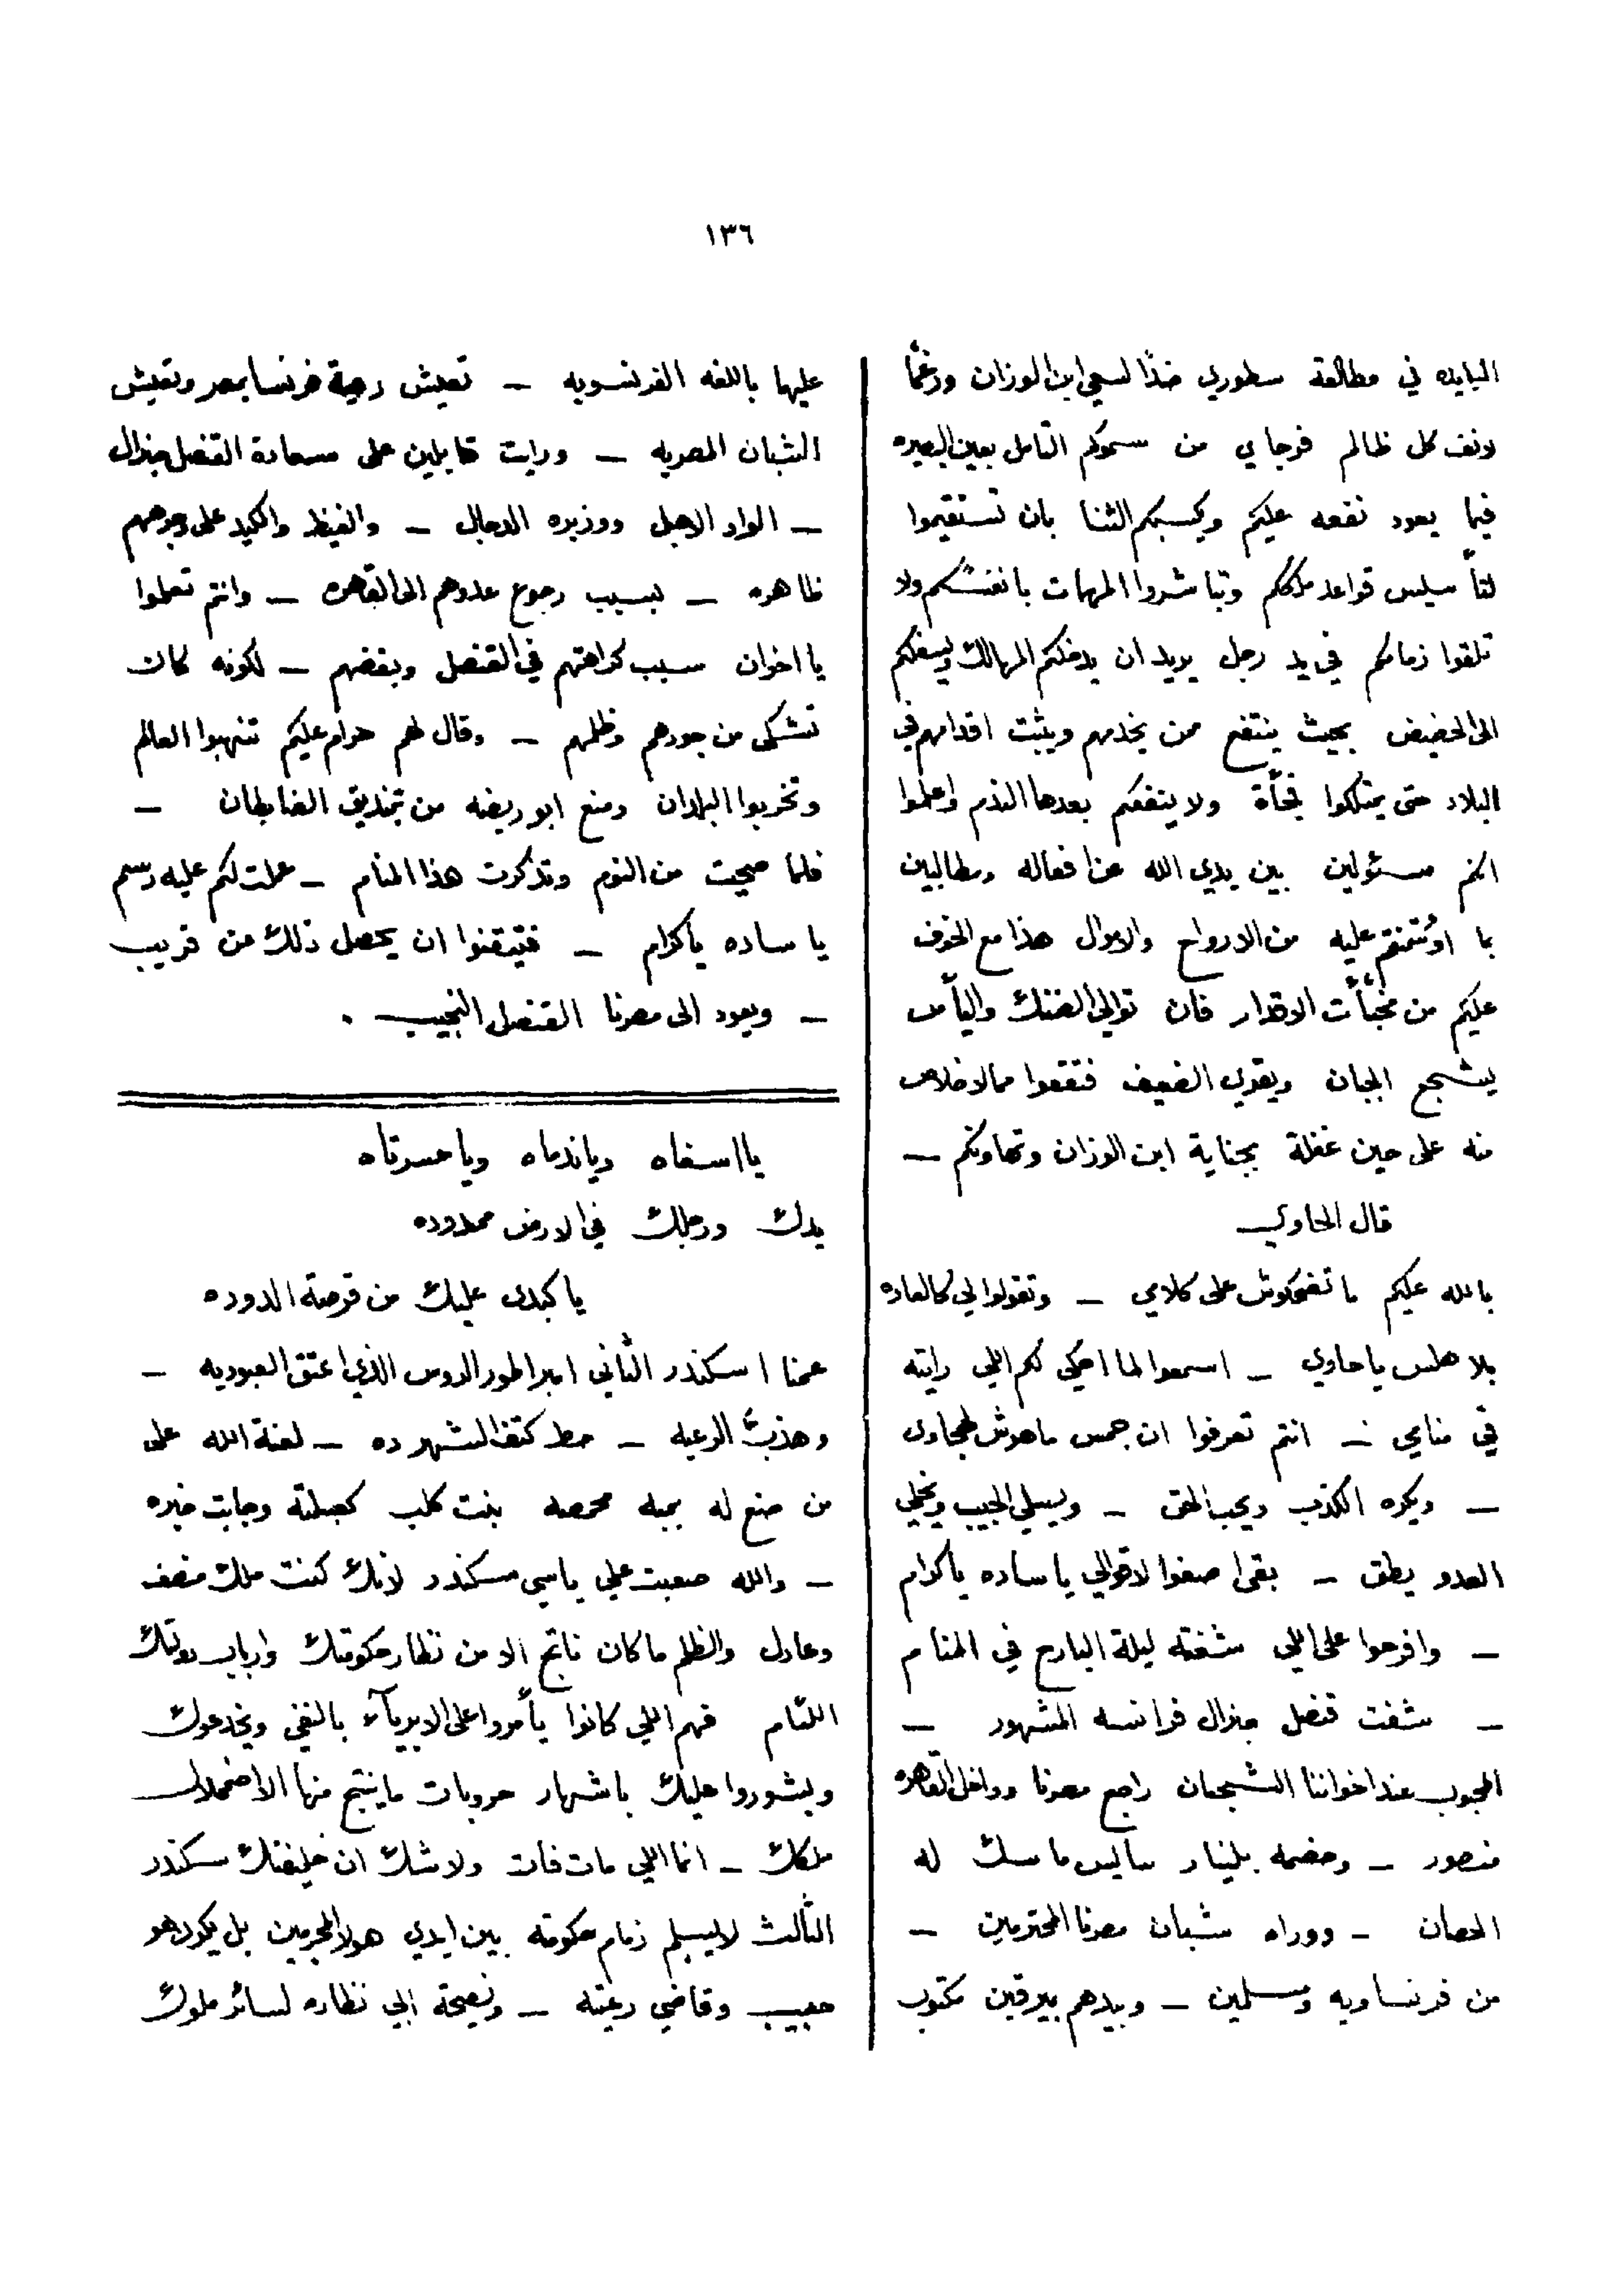 ١٣٦
اليابده في مطالعة سطوري ضدًا لسعي ابن الوزان ورغمًا
لانف كل ظالم فرجاي من سموكم التامل بعين البصيره
فيما يعود نفعه عليكم ويكسبكم الثنا بان تستقيموا
لتأسيس قواعد ملككم وتباشروا المهمات بانفسكم ولا
تلقوا زمامكم في يد رجل يريد ان يدخلكم المهالك ويسفلكم
الى الحضيض بحيث ينتفع ممن يخدمهم ويثبت اقدامهم في
البلاد حتى يمتلكوا فجأة ولا ينفعكم بعدها الندم واعلموا
انكم مسئولين بين يدي الله عن افعاله ومطالبين
بما اؤتمنتم عليه من الارواح والاموال هذا مع الخوف
عليكم من مخبئات الاقدار فان توالي الضنك والياس
يشجع الجبان ويقوي الضعيف فتقعوا مما لاخلاص
منه على حين غفلة بجناية ابن الوزان وتهاونكم –
قال الحاوي
بالله عليكم ما تضحكوش على كلامي – وتقولوا لي كالعاده
بلا هلس يا حاوي – اسمعوا لما احكي لكم اللي رايته
في منامي – انتم تعرفوا ان جمس ماهوش لهجاوى
– ويكره الكذب ويحب الحق – ويسلي الحبيب ويخلي
العدو يطق – بقى اصغوا لاقوالي يا ساده ياكرام
– وافرحوا على اللي شفته ليلة البارح في المنام
– شفت قنصل جنرال فرانسه المشهور –
المحبوب عند اخواننا الشجعان راجع مصرنا وداخل القاهره
منصور – وخصمه بلنيار سايس ماسك له
الحصان – ووراه شبان مصرنا المحترمين –
من فرنساويه ومسلمين – وبيدهم بيرقين مكتوب
عليها باللغه الفرنسويه – تعيش رعية فرنسا بمصر وتعيش
الشبان المصريه – ورايت قابلين على سعادة القنصل جنرال
– الواد الاهبل ووزيره الدجال – والغيظ والكيد على وجوههم
ظاهره – بسبب رجوع عدوهم الى القاهره – وانتم تعلموا
يا اخوان سبب كراهتهم في القنصل وبغضهم – لكونه كان
تشكى من جورهم وظلمهم – وقال لهم حرام عليكم تنهبوا العالم
وتخربوا البلدان ومنع ابو ريضه من تخديق الغابطان –
فلما صحيت من النوم وتذكرت هذا المنام – عملت لكم عليه رسم
يا ساده ياكرام – فتيقنوا ان يحصل ذلك من قريب
– ويعود الى مصرنا القنصل النجيب .
يااسفاه وياندماه وياحسرتاه
يدك ورجلك في الارض ممدوده
يا كبدى عليك من قرصة الدوده
عمنا اسكندر الثاني امبراطور الروس الذي اعتق العبوديه –
وهذب الرعيه – حط كتف الشهر ده – لعنة الله على
من صنع له بمبه محمصه بنت كلب كعبلته وجابت خبره
– والله صعبت علي ياسي سكندر لانك كنت ملك منصف
وعادل والظلم ماكان ناتج الا من نظار حكومتك وارباب دولتك
اللئام فهم اللي كانوا يأمروا على الابرياء بالنفي ويخدعوك
ويشوروا عليك باشهار حروبات ما ينتج منها الا اضمحلال
ملكك – انما اللي مات فات ولاشك ان خليفتك سكندر
الثالث لايسلم زمام حكومته بين ايدي هولا المجرمين بل يكون هو
حبيب وقاضي رعيته – ونصيحة ابي نظاره لسائر ملوك